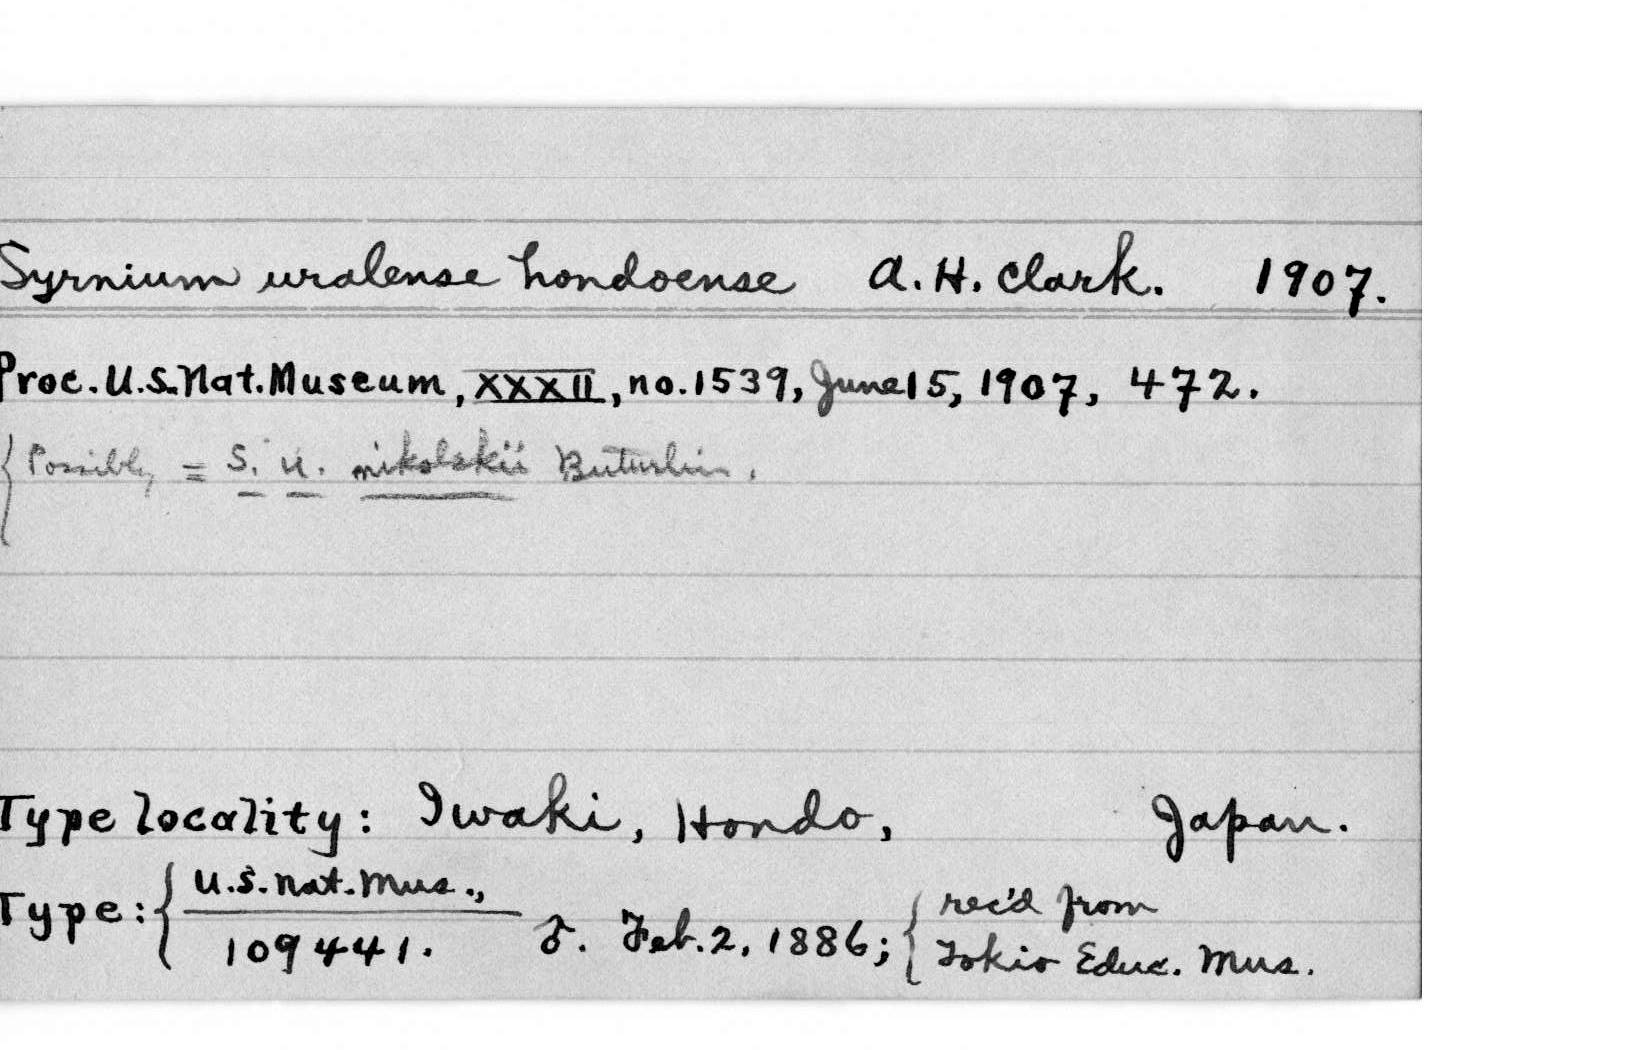 Syrnium uralense hondoense A.H. Clark. 1907.
Proc. U.S. Nat. Museum, XXXII, no. 1539, June 15, 1907, 472.
{ Possibly = S. u. nikolskii Buturlin.
Type locality: Iwaki, Hondo, Japan.
Type: { U.S. Nat. Mus., 109441. ♂. Feb. 2, 1886; { rec'd from
Tokio Educ. Mus.